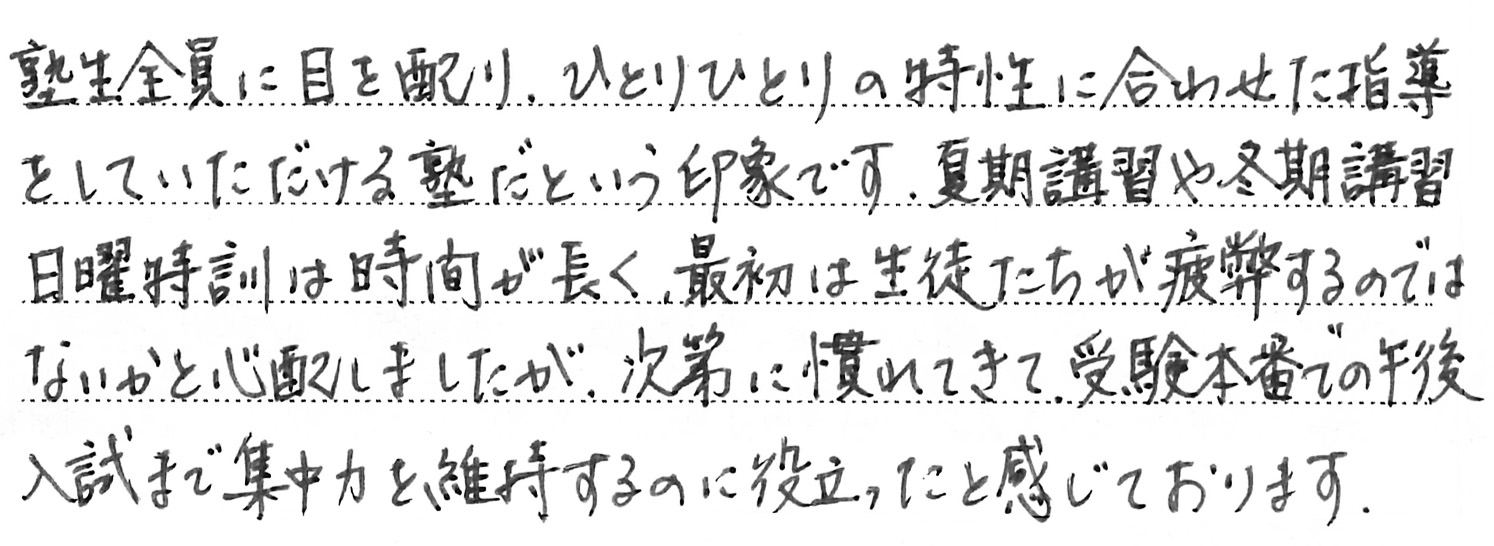 塾生全員に目を配り、ひとりひとりの特性に合わせた指導
をしていただける塾だという印象です。夏期講習や冬期講習
日曜特訓は時間が長く、最初は生徒たちが疲弊するのでは
ないかと心配しましたが、次第に慣れてきて、受験本番での午後
入試まで集中力を維持するのに役立ったと感じております。